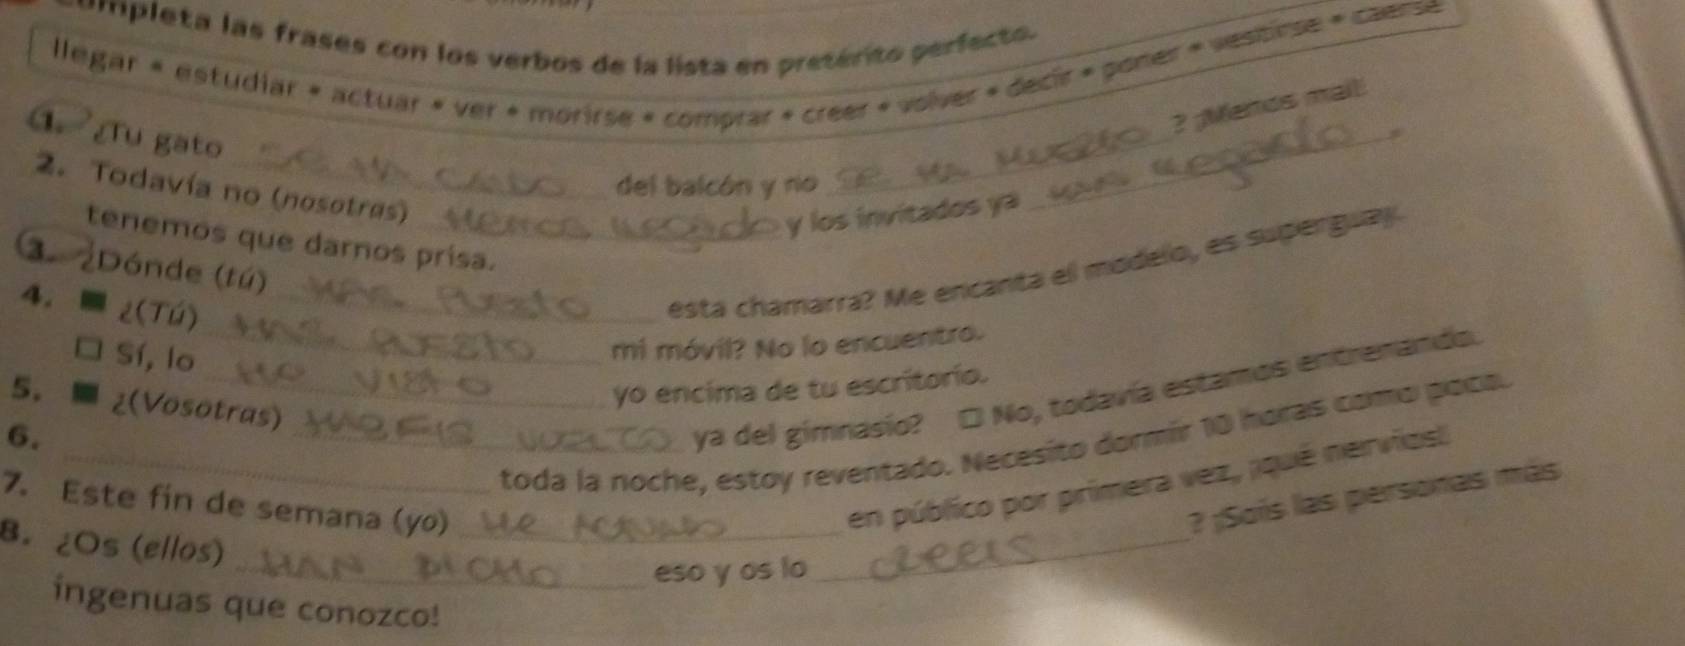 ompleta las frases con los verbos de la lista en pretérito perfecto.
llegar * estudiar * actuar * ver * morirse * comprar * creer * volver * decir * poner * vestirse * caerse
1. ¿Tu gato SE HA CAIDO del balcón y no SE HA MUERTO ? ¡Menos mal!
2. Todavía no (nosotras) HEMOS LLEGADO y los invitados ya HAN LLEGADO.
tenemos que darnos prisa.
3. ¿Dónde (tú) HAS PUESTO esta chamarra? Me encanta el modelo, es superguay.
4. ■ ¿(Tú) HAS PUESTO mi móvil? No lo encuentro.
□ Sí, lo HE VISTO yo encima de tu escritorio.
5. ■ ¿(Vosotras) HABEIS VUELTO ya del gimnasio? □ No, todavía estamos entrenando.
6. toda la noche, estoy reventado. Necesito dormir 10 horas como poco.
7. Este fin de semana (yo) HE ACTUADO en público por primera vez, ¡qué nervios!
8. ¿Os (ellos) HAN DICHO eso y os lo CREEIS ? ¡Sois las personas más
ingenuas que conozco!